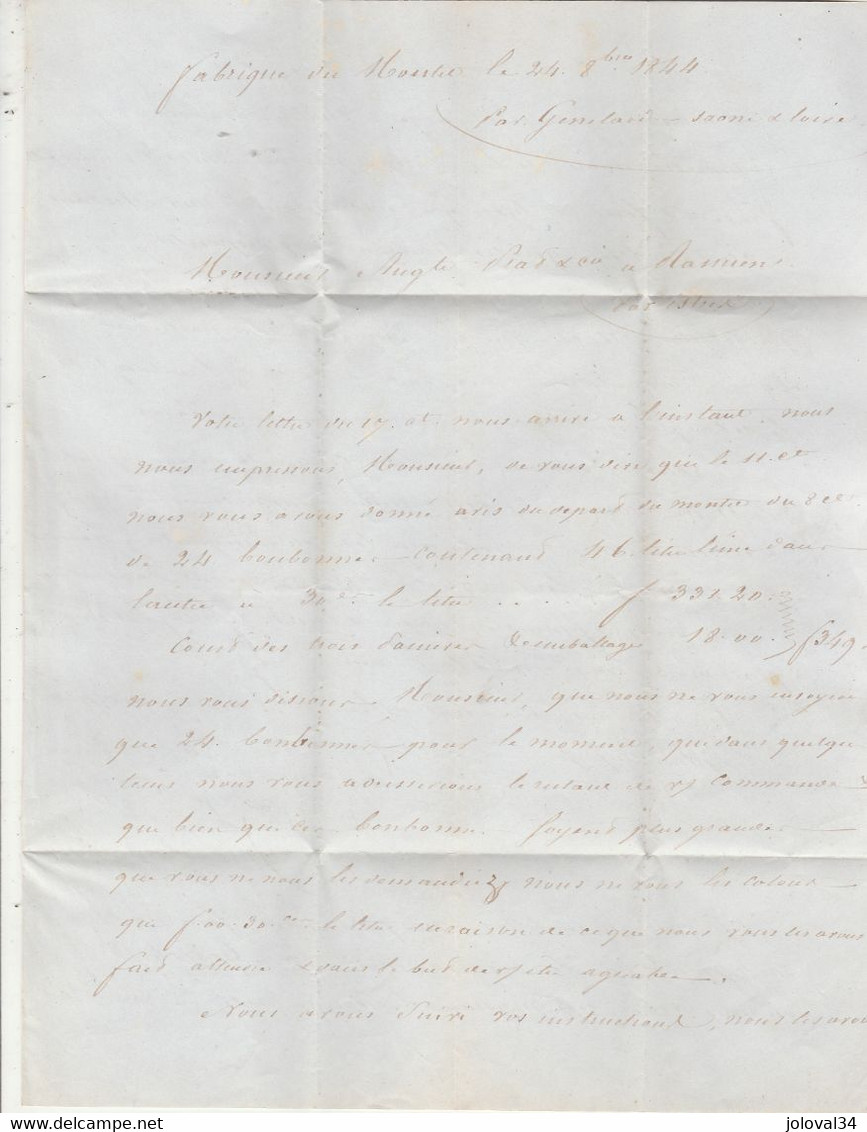 fabrique du Montet le 24. 8bre 1844
Par Genelard – saone & loire
Monsieur Prat & Cie a Rassuen
par istres
Votre lettre du 17 ct. nous arrive a l'instant, nous
nous empressons, Monsieur, de vous dire que le 11. ct
nous vous avons donné avis du depart du montet du 8 ct
de 24 bonbonnes contenant 46 litres l'une dans
lautre a 30 ct le litre . . . . f 331.20.
Cout des trois emballage 18.00. f 349
nous vous disions Monsieur, que nous ne vous envoyons
que 24. bonbonnes pour le moment, que dans quelque
tems nous vous adresserions le restant de v/ commande
que bien que ces bonbonnes soyent plus grandes
que vous ne nous les demandiez nous ne vous les cotons
que f. 00.30 ct le litre en raison de ce que nous vous les avons
fait attendre & dans le but de v/ etre agreable.
Nous avons suivi vos instructions, nous les avons
joloval34